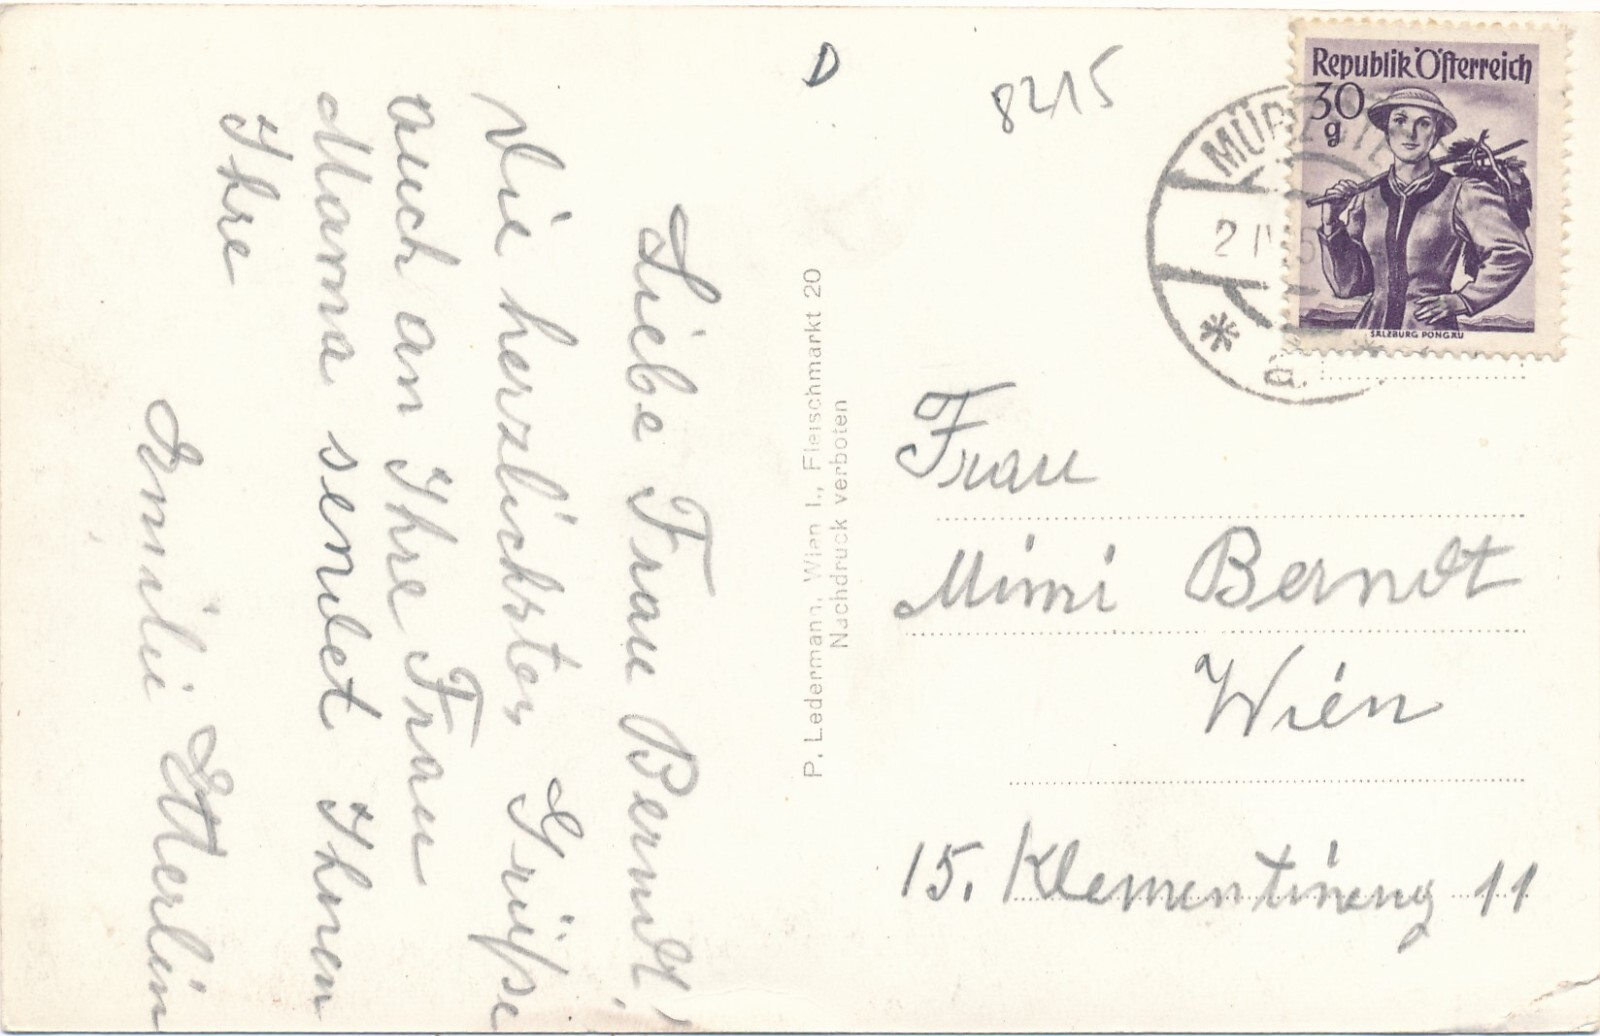 Liebe Frau Berndt!
Die herzlichsten Grüße
auch an Ihre Frau
Mama sendet Ihnen
Ihre
Emilie Etterlin
P. Ledermann, Wien I., Fleischmarkt 20
Nachdruck verboten
D
8215
Republik Österreich
30
g
SALZBURG PONGAU
2 IV 5
*
a.
Frau
Mimi Berndt
Wien
15. Klementineng 11